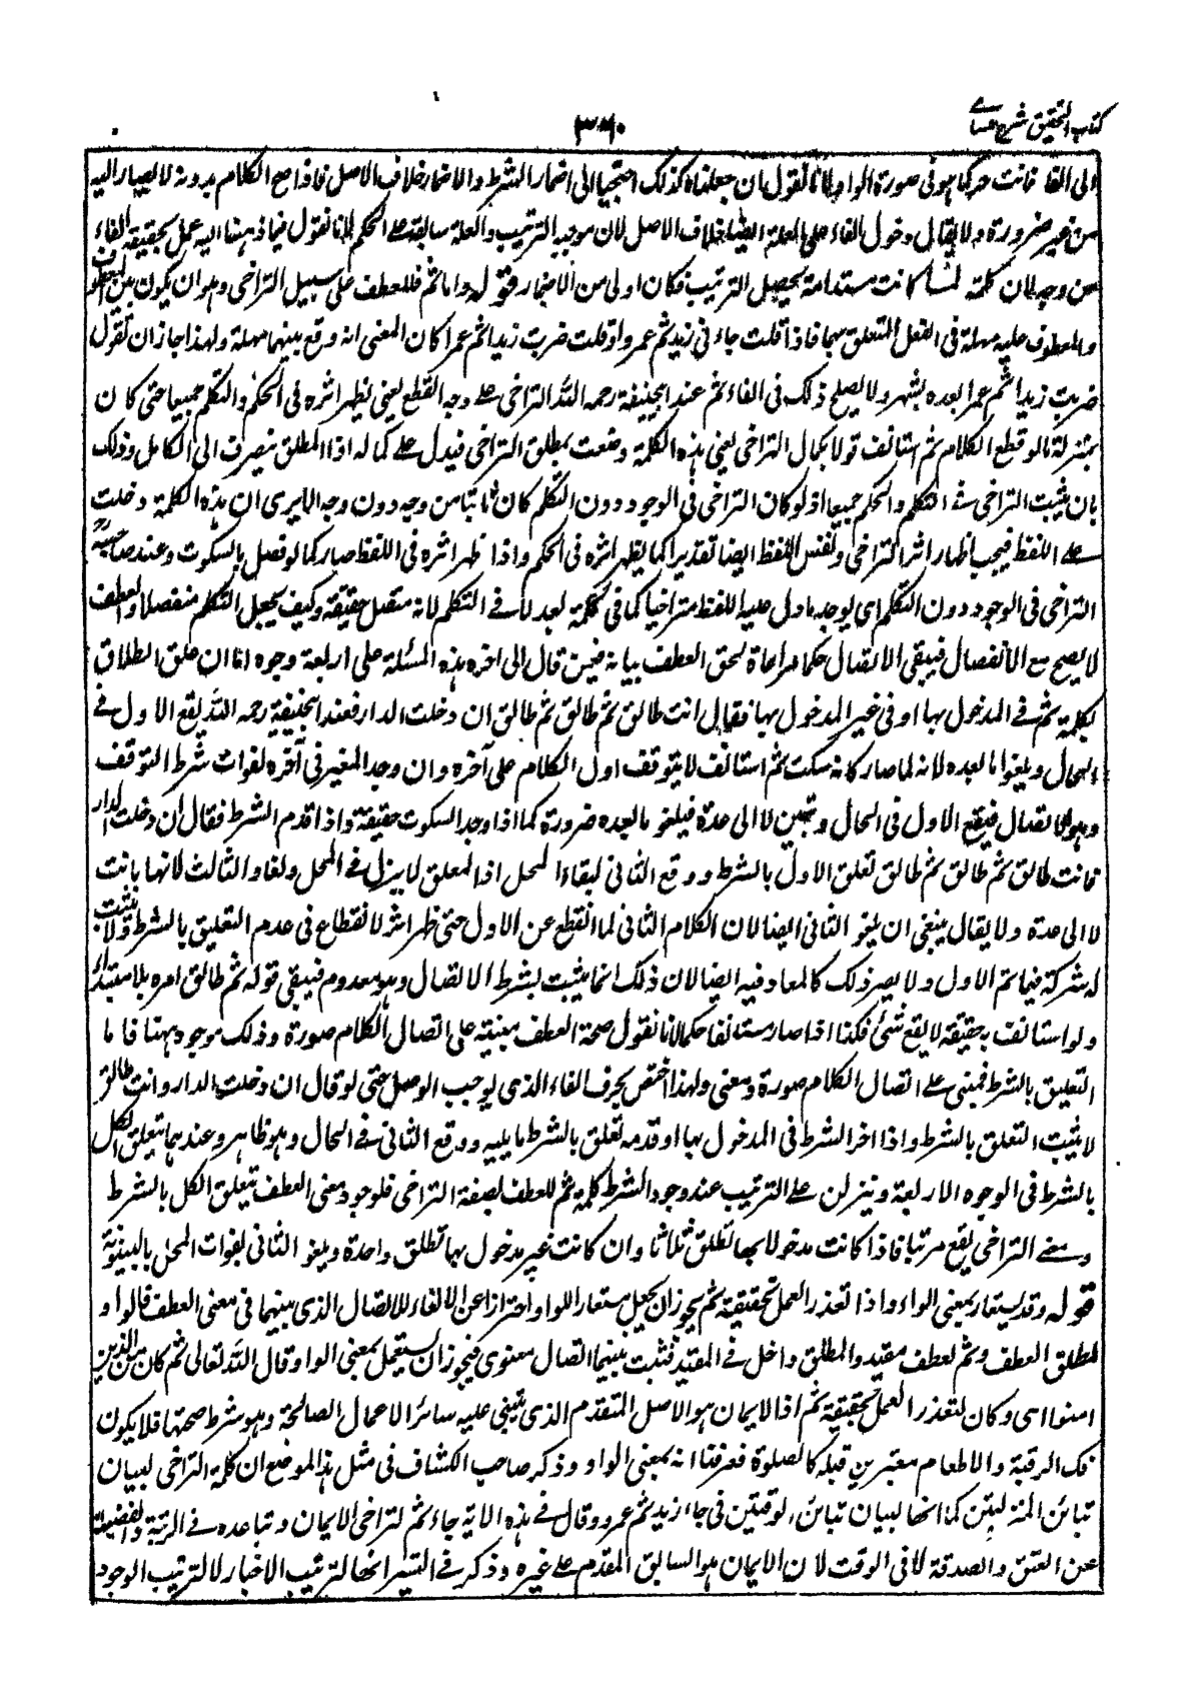 كتاب التحقيق شرح حسامے
٣٦٠
الى الفاء فانت حر كما هو فى صورة الواو لانا نقول ان جعلناه كذلك احتجنا الى اضمار الشرط والاضمار خلاف الاصل فاذا صح الكلام بدونه لا يصار اليه
من غير ضرورة ولا يقال دخول الفاء على العلة ايضا خلاف الاصل لان موجبه الترتيب والعلة سابقة على الحكم لانا نقول فيما ذهبنا اليه عمل بحقيقة الفاء
من وجه لان كلمة لما كانت مستدامة يحصل الترتيب فكان اولى من الاضمار قوله واما ثم فللعطف على سبيل التراخى وهو ان يكون بين المعطوف
والمعطوف عليه مهلة فى الفعل المتعلق بهما فاذا قلت جاءنى زيد ثم عمرو او قلت ضربت زيدا ثم عمرا كان المعنى انه وقع بينهما مهلة ولهذا جاز ان تقول
ضربت زيدا ثم عمرا بعده بشهر ولا يصلح ذلك فى الفاء ثم عند ابيحنيفة رحمه الله التراخى على وجه القطع يعنى يظهر اثره فى الحكم والتكلم جميعا حتى كان
بمنزلة ما لو قطع الكلام ثم استانف قولا بكمال التراخى يعنى هذه الكلمة وضعت بمطلق التراخى فيدل على كماله اذا المطلق ينصرف الى الكامل وذلك
بان يثبت التراخى فى التكلم والحكم جميعا اذ لو كان التراخى فى الوجود دون التكلم كان ثابتا من وجه دون وجه الا يرى ان هذه الكلمة دخلت
على اللفظ فيجب اظهار اثر التراخى فى نفس اللفظ ايضا تقديرا كما يظهر اثره فى الحكم واذا ظهر اثره فى اللفظ صار كما لو فصل بالسكوت وعند صاحبيه
التراخى فى الوجود دون التكلم اى يوجد ما دل عليه اللفظ متراخيا كما فى كلمة بعد لا فى التكلم لانه متصل حقيقة وكيف يجعل التكلم منفصلا والعطف
لا يصح مع الانفصال فيبقى الاتصال حكما مراعاة لحق العطف بيانه فيمن قال الى اخره هذه المسئلة على اربعة وجوه اما ان علق الطلاق
بكلمة ثم فى المدخول بها او فى غير المدخول بها فقال انت طالق ثم طالق ثم طالق ان دخلت الدار فعند ابيحنيفة رحمه الله يقع الاول فى
الحال ويلغوا ما بعده لانه لما صار كانه سكت ثم استانف لا يتوقف اول الكلام على آخره وان وجد المغير فى آخره لفوات شرط التوقف
وهو الاتصال فيقع الاول فى الحال وتبين لا الى عدة فيلغو ما بعده ضرورة كما اذا وجد السكوت حقيقة واذا قدم الشرط فقال ان دخلت الدار
فانت طالق ثم طالق ثم طالق تعلق الاول بالشرط ووقع الثانى لبقاء المحل اذ المعلق لا ينزل فى المحل ولغا والثالث لانها بانت
لا الى عدة ولا يقال ينبغى ان يلغو الثانى ايضا لان الكلام الثانى لما انقطع عن الاول حتى ظهر اثر الانقطاع فى عدم التعليق بالشرط ولا يثبت
له شركة فيما تم الاول ولا يصير ذلك كالمعاد فيه ايضا لان ذلك انما يثبت بشرط الاتصال وهو معدوم فيبقى قوله ثم طالق امره بلا مبتدأ
ولو استانف به حقيقة لا يقع شئ فكذا اذا صار مستانفا حكما لانا نقول صحة العطف مبنية على اتصال الكلام صورة وذلك موجود ههنا فاما
التعليق بالشرط فمبنى على اتصال الكلام صورة ومعنى ولهذا اختص بحرف الفاء الذى يوجب الوصل حتى لو قال ان دخلت الدار وانت طالق
لا يثبت التعلق بالشرط واذا اخر الشرط فى المدخول بها او قدمه تعلق بالشرط ما يليه ووقع الثانى فى الحال وهو ظاهر وعندهما يتعلق الكل
بالشرط فى الوجوه الاربعة وينزلن على الترتيب عند وجود الشرط كلمة ثم للعطف بصفة التراخى فلوجود معنى العطف يتعلق الكل بالشرط
ومعنى التراخى يقع مرتبا فاذا كانت مدخولا بها تطلق ثلاثا وان كانت غير مدخول بها تطلق واحدة ويلغو الثانى لفوات المحل بالبينونة
قوله وقد يستعار بمعنى الواو اذا تعذر العمل بحقيقة ثم يجوز ان يجعل مستعار اللواو احترازا عن الالغاء للاتصال الذى بينهما فى معنى العطف فالواو
لمطلق العطف وثم لعطف مقيد والمطلق داخل فى المقيد فثبت بينهما اتصال معنوى فيجوز ان يستعمل بمعنى الواو قال الله تعالى ثم كان من الذين
امنوا اى وكان لتعذر العمل بحقيقة ثم اذ الايمان هو الاصل المتقدم الذى يبتنى عليه سائر الاعمال الصالحة وهو شرط صحتها فلا يكون
فك الرقبة والاطعام معتبرين قبله كالصلوة فعرفنا انه بمعنى الواو وذكر صاحب الكشاف فى مثل هذا الموضع ان كلمة التراخى لبيان
تباين المنزلتين كما انها لبيان تباين الوقتين فى جاء زيد ثم عمرو وقال فى هذه الاية جاء ثم لتراخى الايمان وتباعده فى الرتبة والفضيلة
عن العتق والصدقة لا فى الوقت لان الايمان هو السابق المقدم على غيره وذكر فى التيسير انها لترتيب الاخبار لا لترتيب الوجود